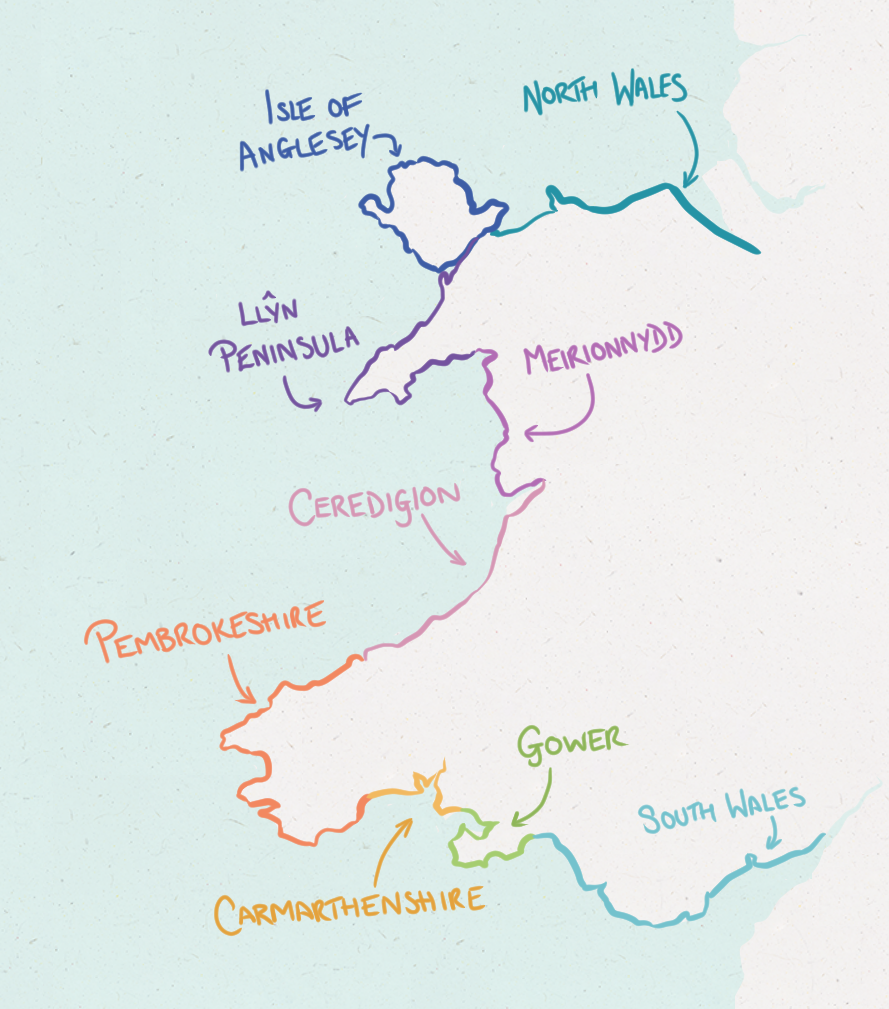 ISLE OF
ANGLESEY
NORTH WALES
LLŶN
PENINSULA
MEIRIONNYDD
CEREDIGION
PEMBROKESHIRE
GOWER
SOUTH WALES
CARMARTHENSHIRE